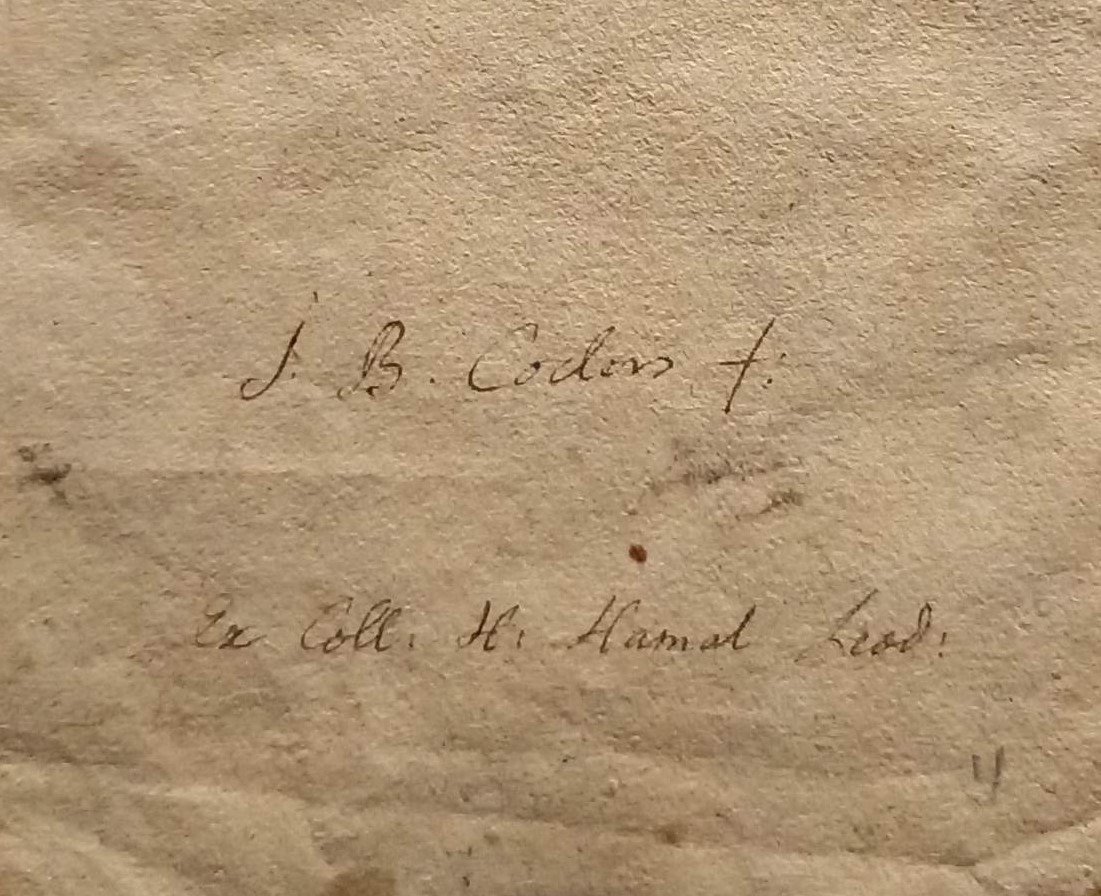 J. B. Coclers f:
Ex Coll. H. Hamal Leod:
4